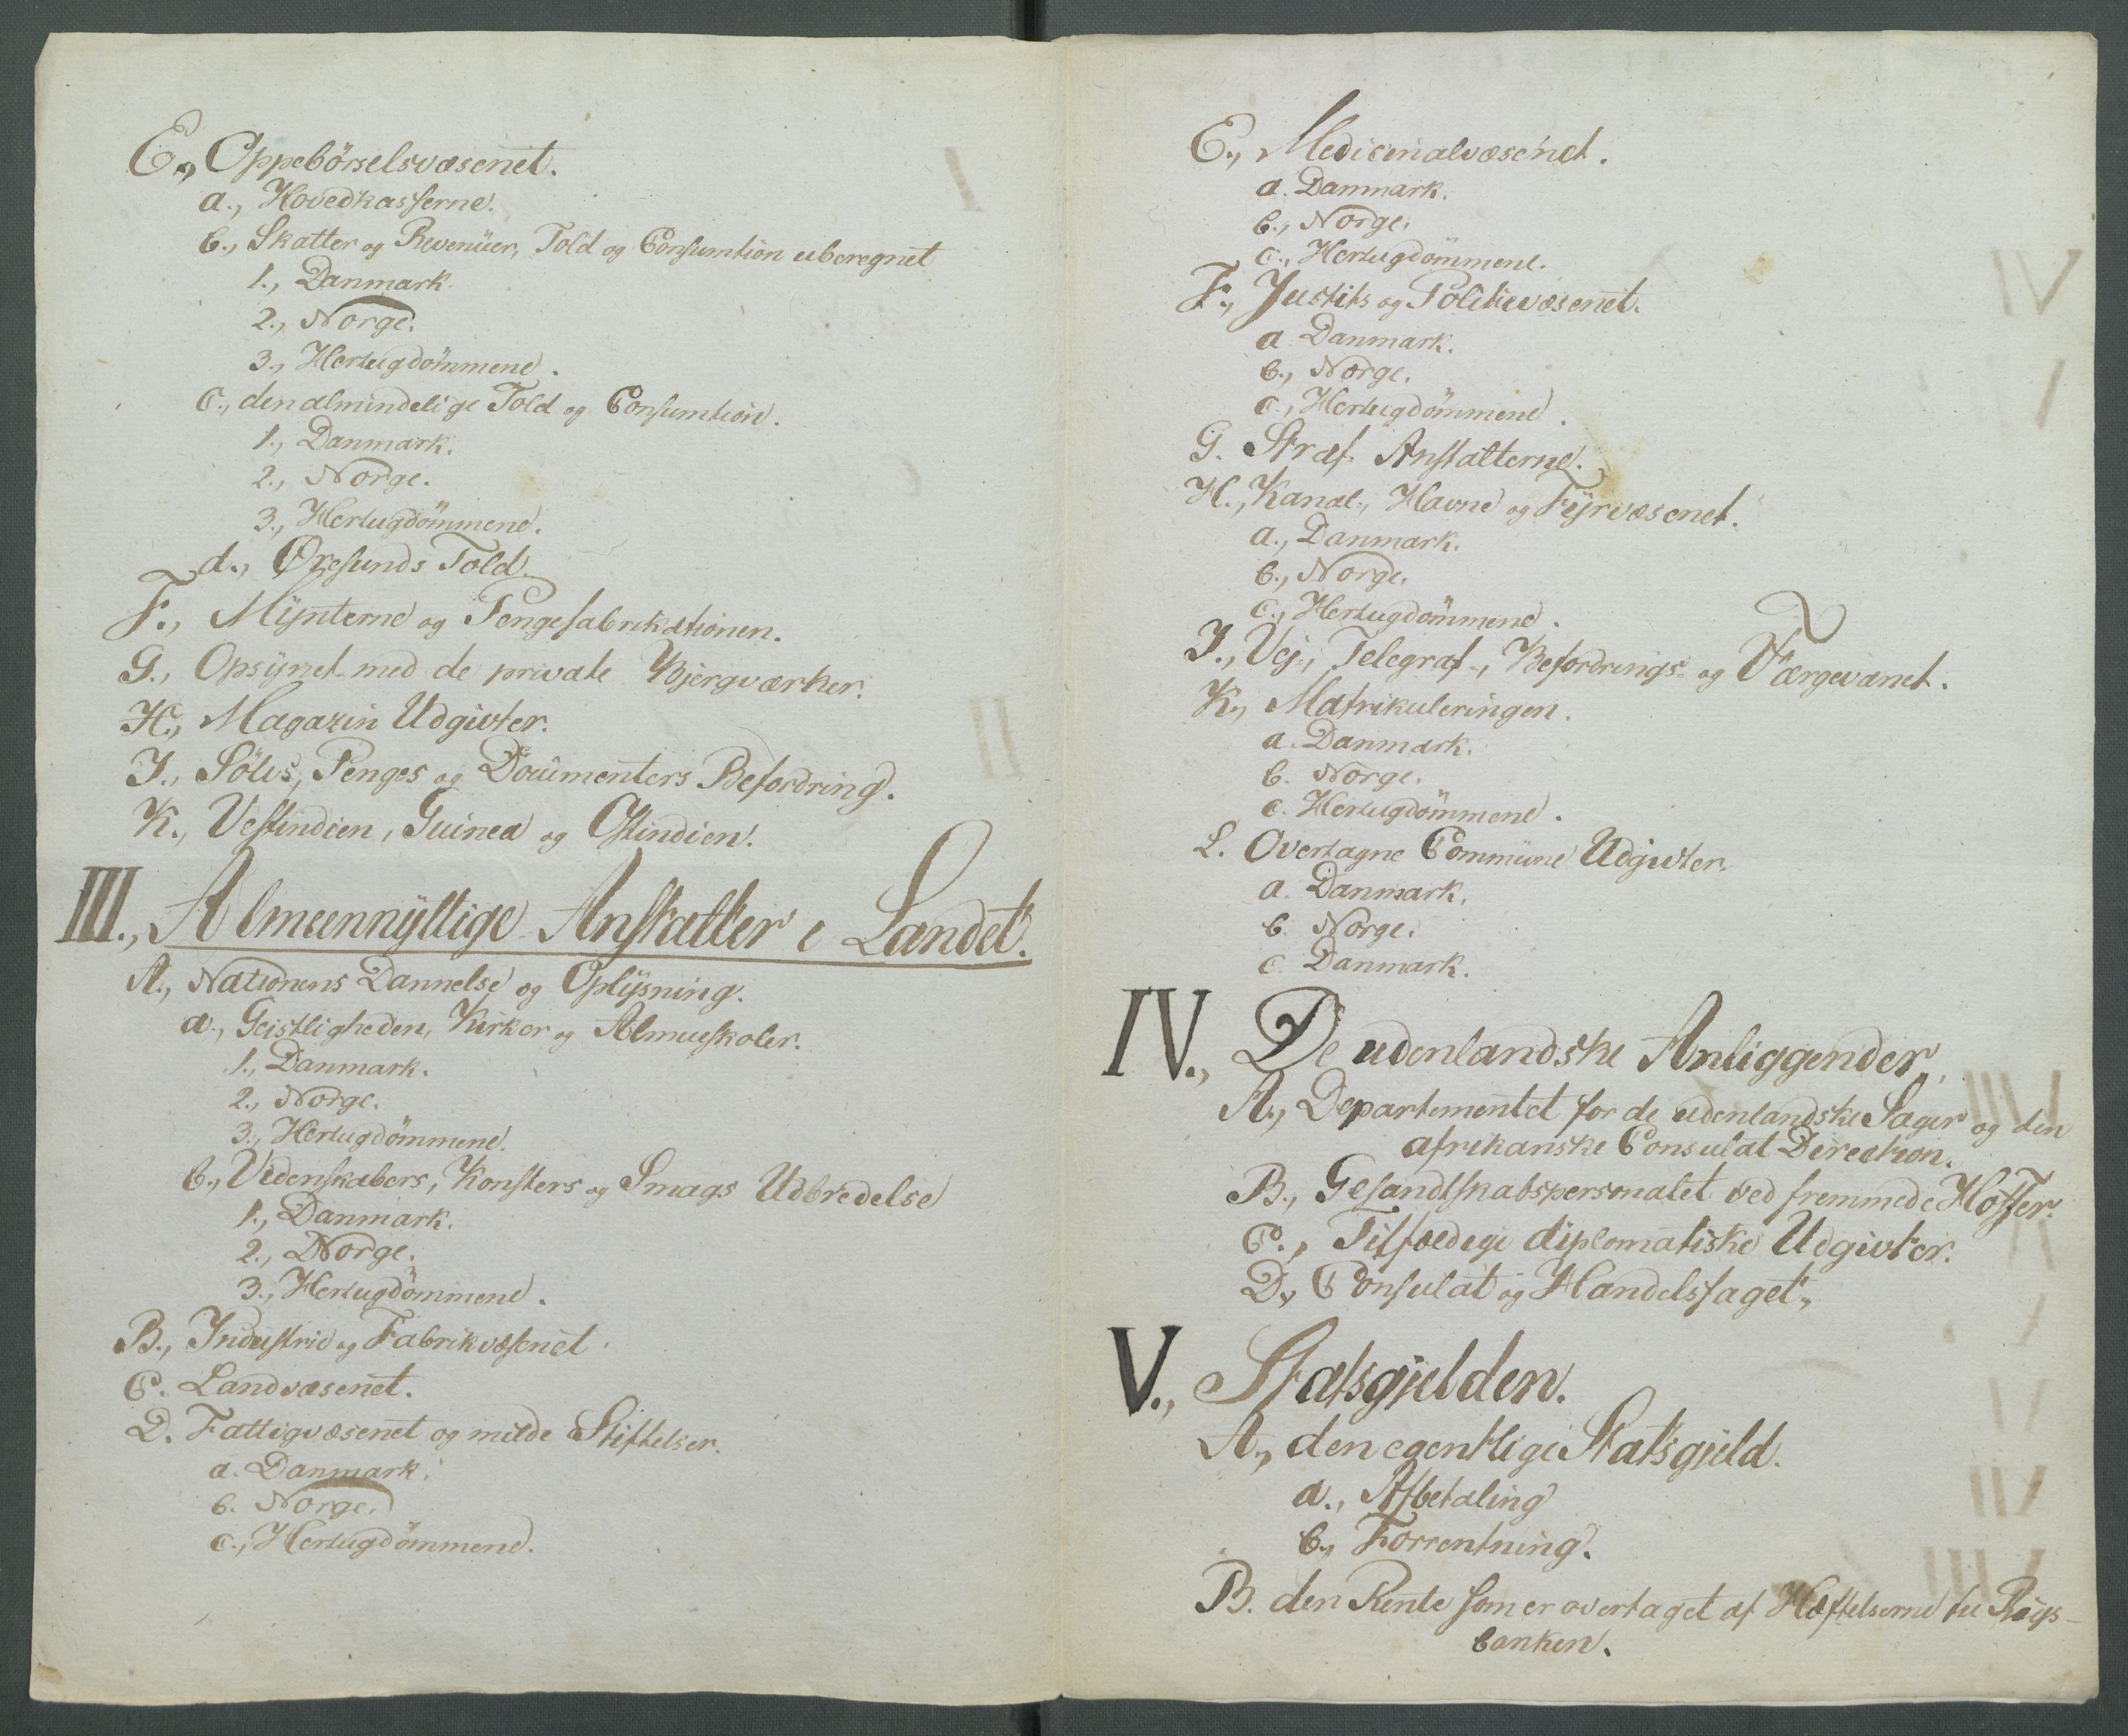 E., Oppebörselsvæsenet.
a., Hovedkasserne.
b., Skatter og Revenüer, Told og Consumtion uberegnet
1., Danmark.
2., Norge.
3., Hertugdömmene.
c., den almindelige Told og Consumtion.
1., Danmark.
2., Norge.
3., Hertugdömmene.
d., Øresunds Told.
F., Mÿnterne og Pengefabrikationen.
G., Opsÿnet med de private Bjergværker.
H., Magazin Udgivter.
I., Sölvs, Penges og Documenters Befordring.
K., Vestindien, Guinea og Ostindien.
III., Almeennÿttige Anstalter i Landet.
A., Nationens Dannelse og Oplÿsning.
a., Geistligheden, Kirker og Almueskoler.
1., Danmark.
2., Norge.
3., Hertugdömmene.
b., Videnskabers, Konsters og Smags Udbredelse
1., Danmark.
2., Norge.
3., Hertugdömmene.
B., Industrie og Fabrikvæsenet.
C. Landvæsenet.
D. Fattigvæsenet og milde Stiftelser.
a. Danmark.
b. Norge.
c., Hertugdömmene.
E., Medicinalvæsenet.
a. Danmark.
b., Norge.
c., Hertugdömmene.
F., Justits og Politievæsenet.
a Danmark.
b., Norge.
c., Hertugdömmene.
G. Straf-Anstalterne.
H., Kanal-, Havne og Fÿrvæsenet.
a., Danmark.
b., Norge.
c., Hertugdömmene.
I., Vej-, Telegraf-, Befordrings- og Færgevænet.
K., Matrikuleringen.
a. Danmark.
b. Norge.
c. Hertugdömmene.
L. Overtagne Commüne Udgivter.
a. Danmark.
b. Norge.
c Danmark.
IV., De udenlandske Anliggender.
A., Departementet for de udenlandske Sager og den
afrikanske Consulat Direction.
B., Gesandtskabspersonalet ved fremmede Hoffer.
C., Tilfældige diplomatiske Udgivter.
D., Consulat og Handelsfaget.,
V., Statsgjelden.
A., den egentlige Statsgjeld.
a., Afbetaling
b., Forrentning.
B. den Rente som er overtaget af Hæftelserne til Rigs-
banken.